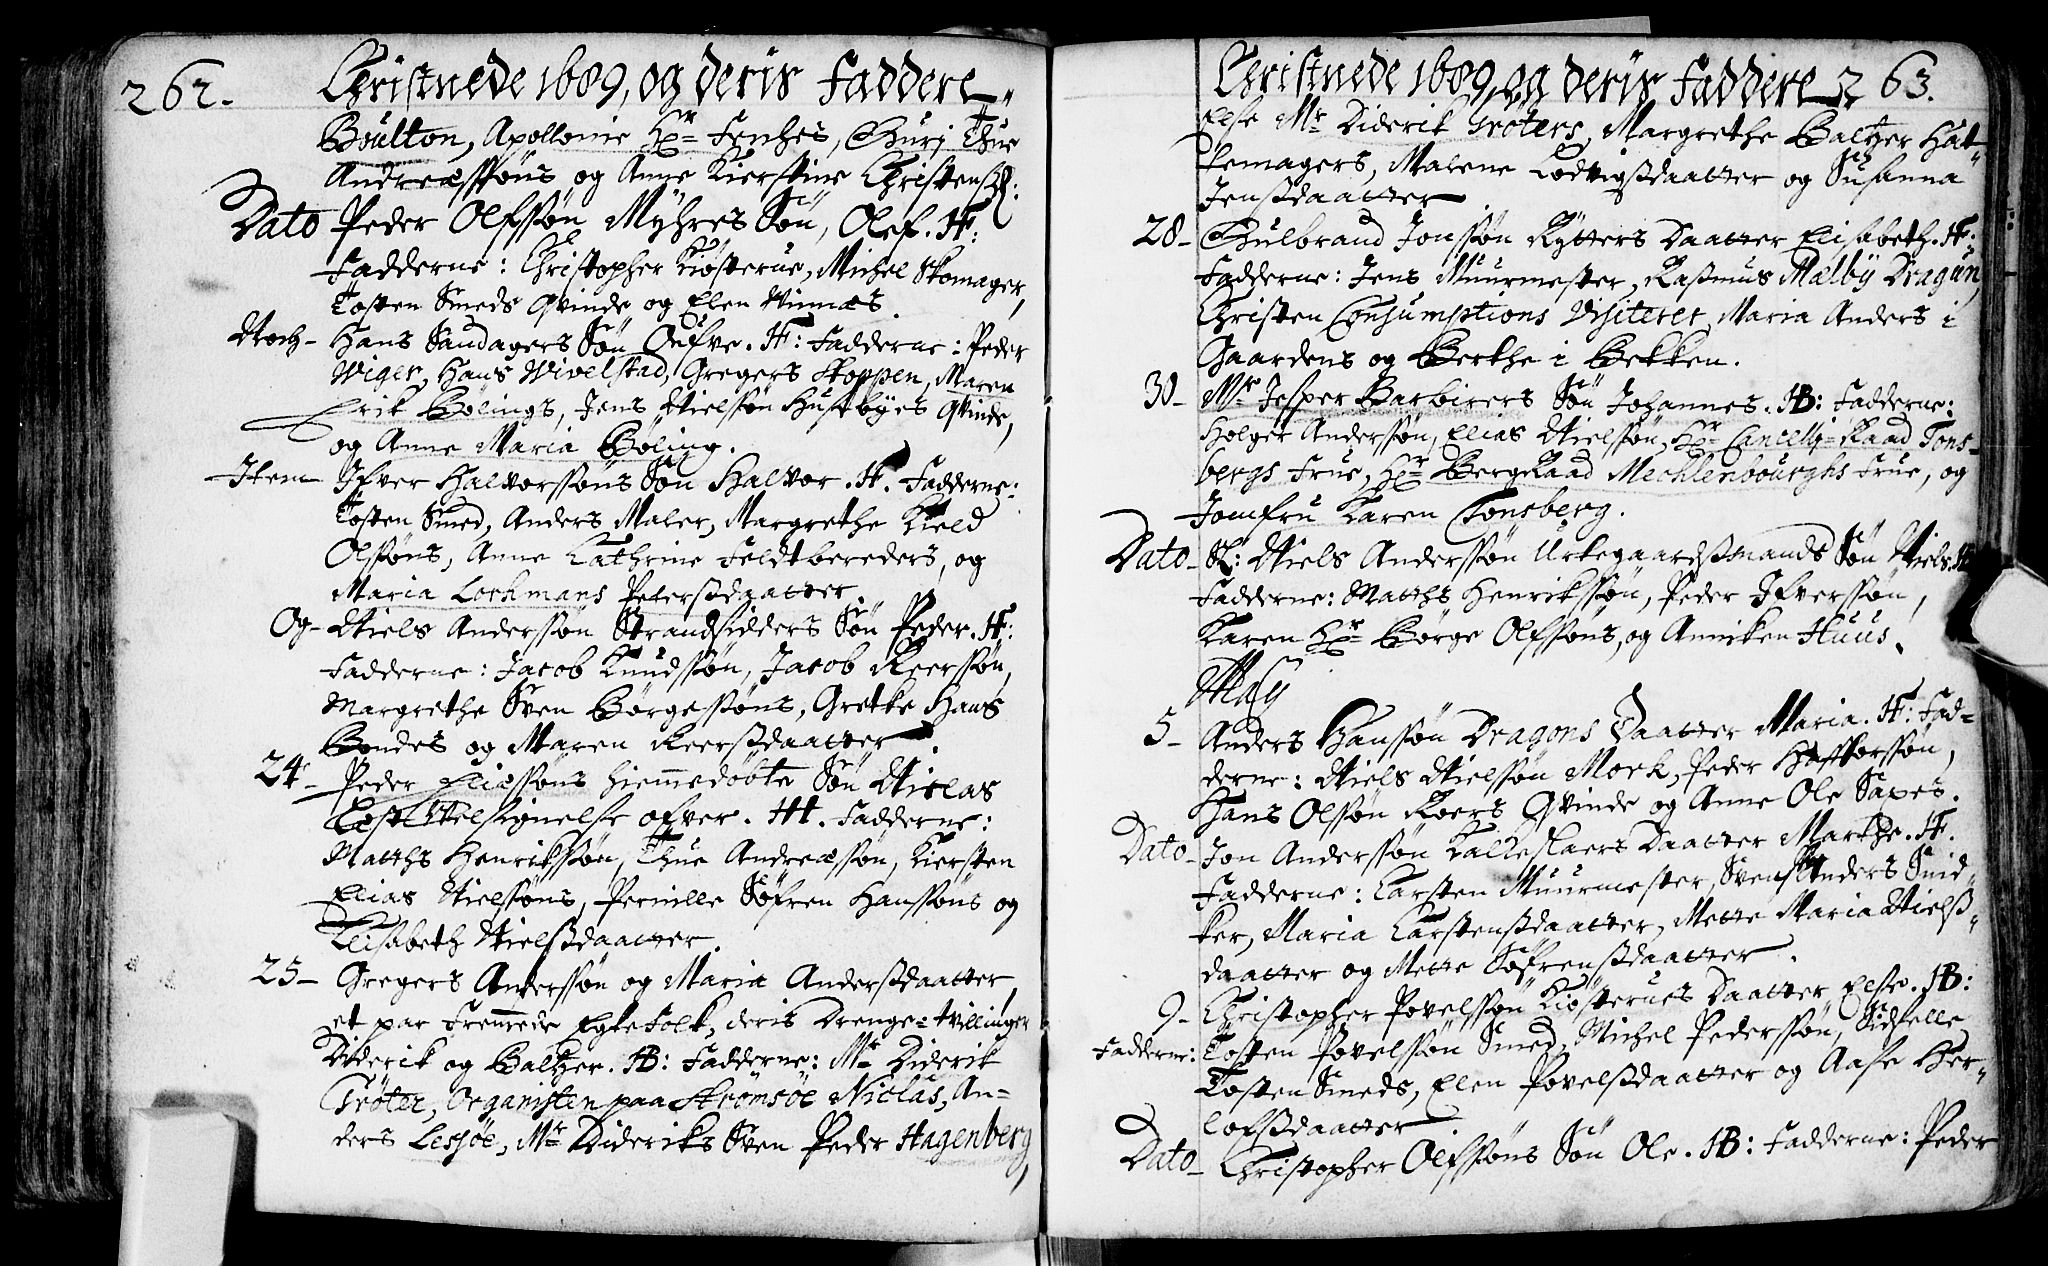 262.
Christnede 1689, og deris Faddere
Boulton, Apollonie Hr Fenhes, Guri Thue
Andreæssøns og Anne Kierstine Christensd:
Dato Peder Olfssøn Myhres Søn, Olef. H:
Fadderne: Christopher Kiøsterue, Michel Skomager,
Tosten Smeds Qvinde og Elen Vinnæs.
Noch- Hans Sandagers Søn Oefve. H: Fadderne: Peder
Wiger, Hans Wivelstad, Gregers Skoppen, Maren
Erik Bølings, Jens Nielssøn Husebyes Qvinde,
og Anne Maria Bøling.
Item Ifver Halvorssøns Søn Halvor. H. Fadderne:
Tosten Smed, Anders Maler, Margrethe Kield
Olssøns, Anne Cathrine Feldtbereders, og
Maria Lochmans Petersdaatter.
Og- Niels Anderssøn Strandsidders Søn Peder. H:
Fadderne: Jacob Knudssøn, Jacob Reerssøn,
Margrethe Sven Børgessøns, Grethe Hans
Bondes og Maren Reersdaatter.
24- Peder Eliæssøns hiemmedøbte Søn Niclas
Læst Velsignelse ofver. H. Fadderne:
Matths Henrikssøn, Thue Andreæssøn, Kiersten
Elias Nielssøns, Pernille Søfren Hanssøns og
Elisabeth Nielsdaatter.
25- Gregers Anderssøn og Maria Andersdaatter,
et par fremmede Egtefolk, deris Drenge=tvillinger
Diderik og Baltzer. HB: Fadderne: Mr Diderik
Trøter, Organisten paa Strømsøe Niclas, An=
ders Lessøe, Mr Dideriks Sven Peder Hagenberg,
Christnede 1689, og deris Faddere 263.
Else Mr Diderik Trøters, Margrethe Baltzer Hat=
temagers, Malene Lodvigsdaatter og Susanna
Jensdaatter
28- Gulbrand Jonssøn Rytters Daatter Elisabeth. H:
Fadderne: Jens Muurmester, Rasmus Mælby Dragun,
Christen Consumptions Visiterer, Maria Anders i
Gaardens og Berthe i Bekken.
30- Mr Jesper Barbirers Søn Johannes. HB: Fadderne:
Holger Anderssøn, Elias Nielssøn, Hr Cancelli=Raad Tons=
bergs Frue, Hr BergRaad Mechlenbourghs Frue, og
Jomfru Karen Tonsberg.
Dato- Sl: Niels Anderssøn Urtegaardsmands Søn Niels. H
Fadderne: Matths Henrikssøn, Peder Ifverssøn,
Karen Hr Børge Olfssøns, og Anniken Huus.
May
5- Anders Hanssøn Dragons Daatter Maria. H: Fad=
derne: Niels Nielssøn Moek, Peder Haffthorssøn,
Hans Olssøn Roers Qvinde og Anne Ole Sapes.
Dato- Jon Anderssøn Kalkeslaers Daatter Marthe. H.
Fadderne: Carsten Muurmester, Svend Anders Snid=
ker, Maria Carstensdaatter, Mette Maria Niels=
daatter og Mette Søfrensdaatter.
9- Christopher Povelssøn Kiøsterues Daatter Else. HB:
Fadderne: Tosten Povelssøn Smed, Michel Pederssøn, Sidselle
Tosten Smeds, Elen Povelsdaatter og Aase Her=
lofsdaatter.
Dato- Christopher Olfssøns Søn Ole. HB: Fadderne: Peder